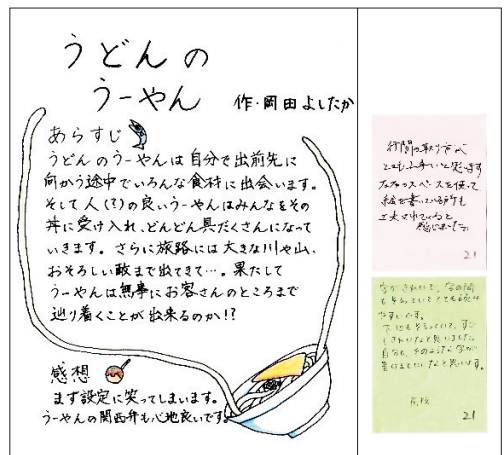 うどんの
うーやん
作・岡田よしたか
あらすじ
うどんのうーやんは自分で出前先に
向かう途中でいろんな食材に出会います。
そして人(?)の良いうーやんはみんなをその
丼に受け入れ、どんどん具だくさんになって
いきます。さらに旅路には大きな川や山、
おそろしい敵まで出てきて…。果たして
うーやんは無事にお客さんのところまで
辿り着くことが出来るのか!?
感想
まず設定に笑ってしまいます。
うーやんの関西弁も心地良いです。
行間の取り方が
とても上手いと思います
スペースを使って
絵を書いている所も
工夫されていると
感じました。
21
字がきれいで、字の間
もそろっていてとても読み
やすいです。
きれいだなと思いました。
自分も、そのような字が
書けるようになりたいと思います。
21